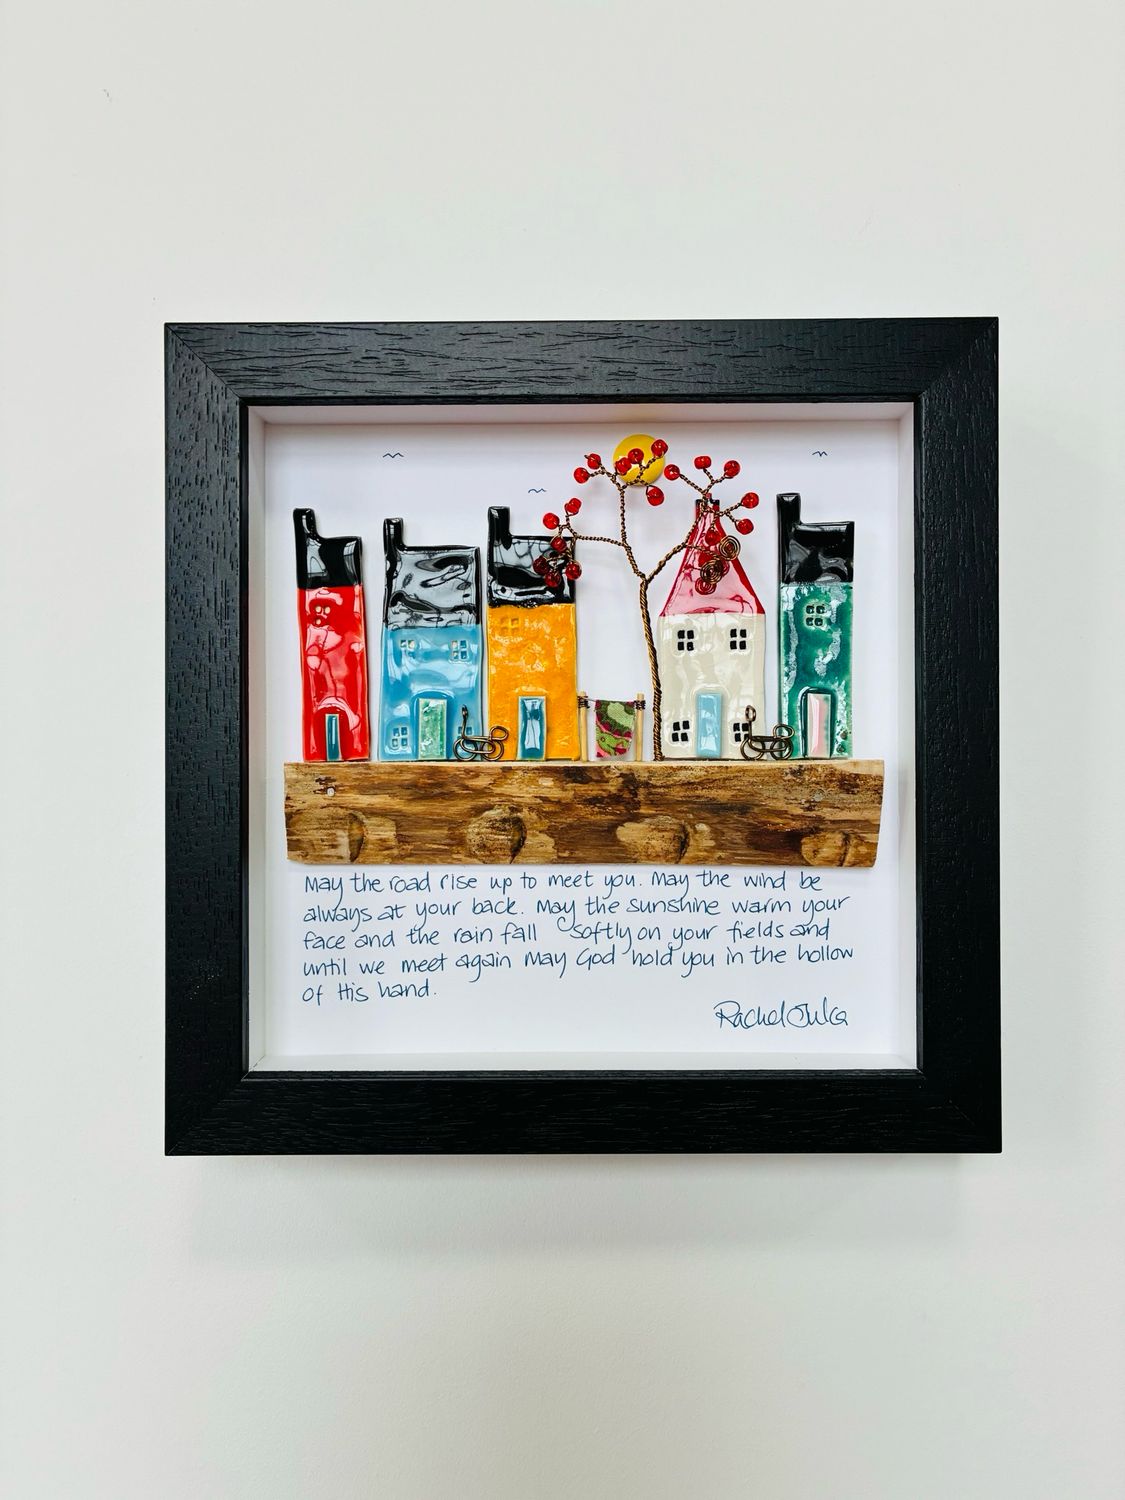 May the road rise up to meet you. May the wind be
always at your back. May the sunshine warm your
face and the rain fall softly on your fields and
until we meet again may God hold you in the hollow
of His hand.
Rachel